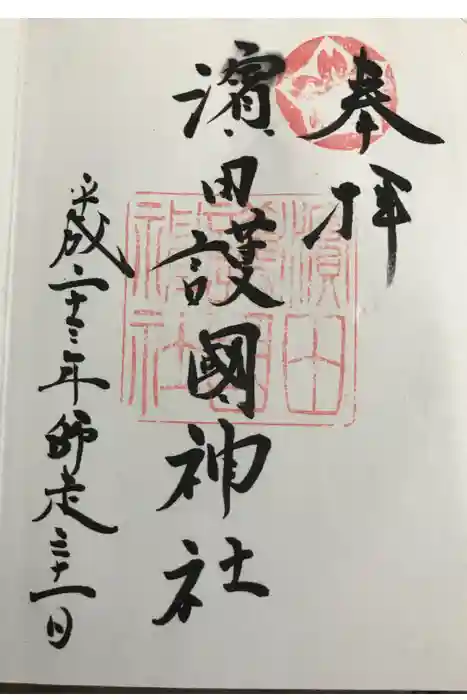 奉拝
濱田護國神社
平成二十三年師走三十一日
濱田
護國
神社